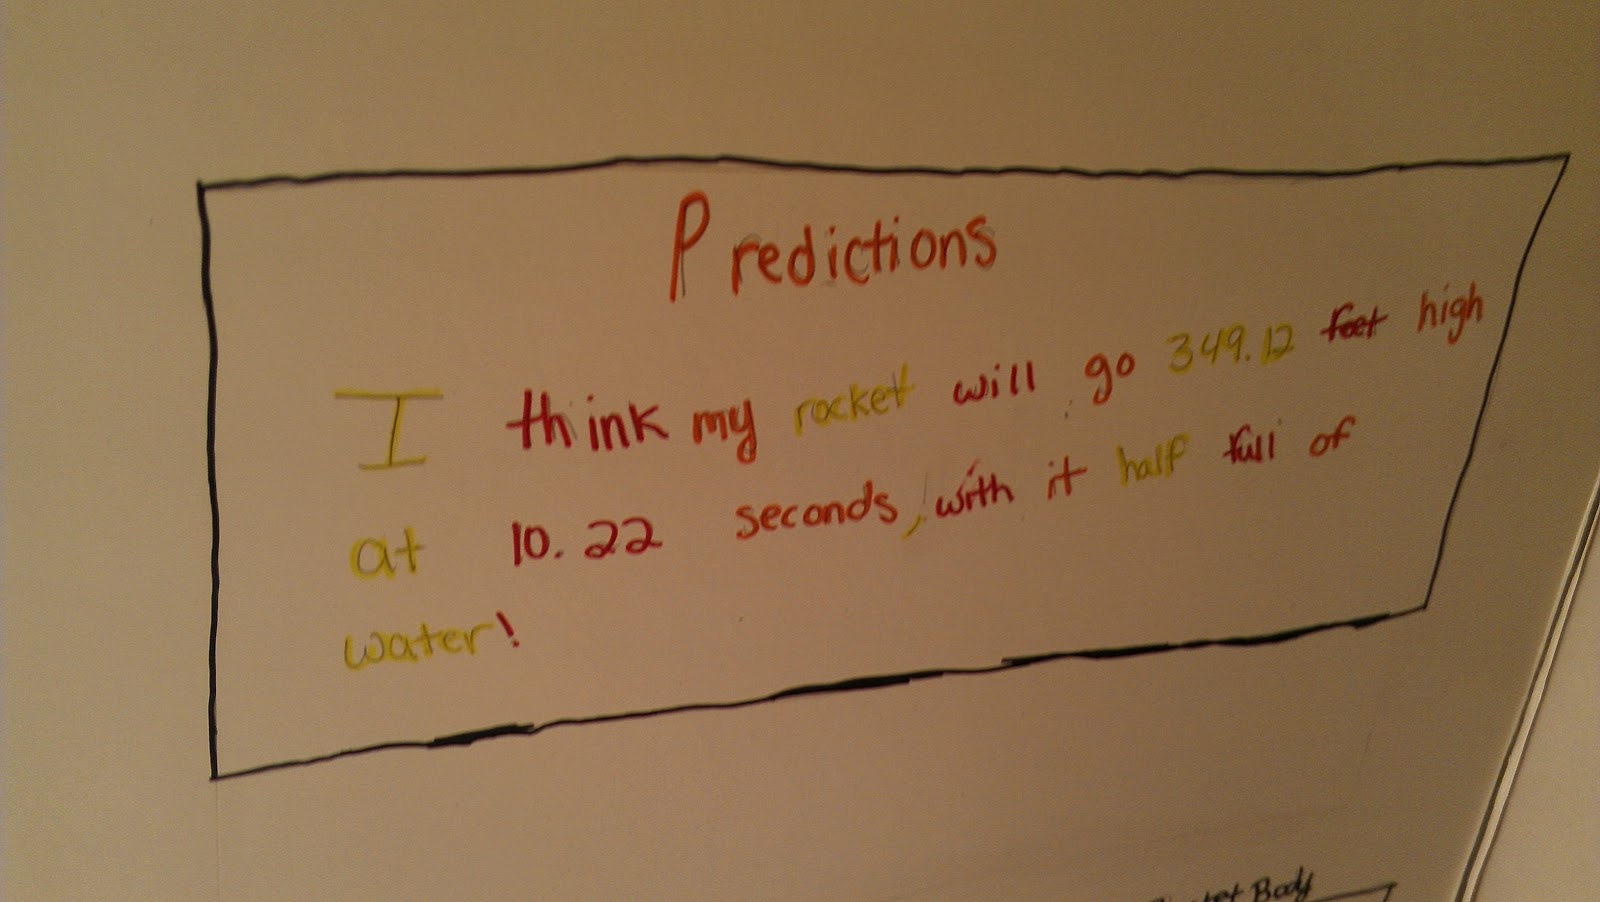 Predictions
I think my rocket will go 349.12 feet high
at 10.22 seconds, with it half full of
water!
Body